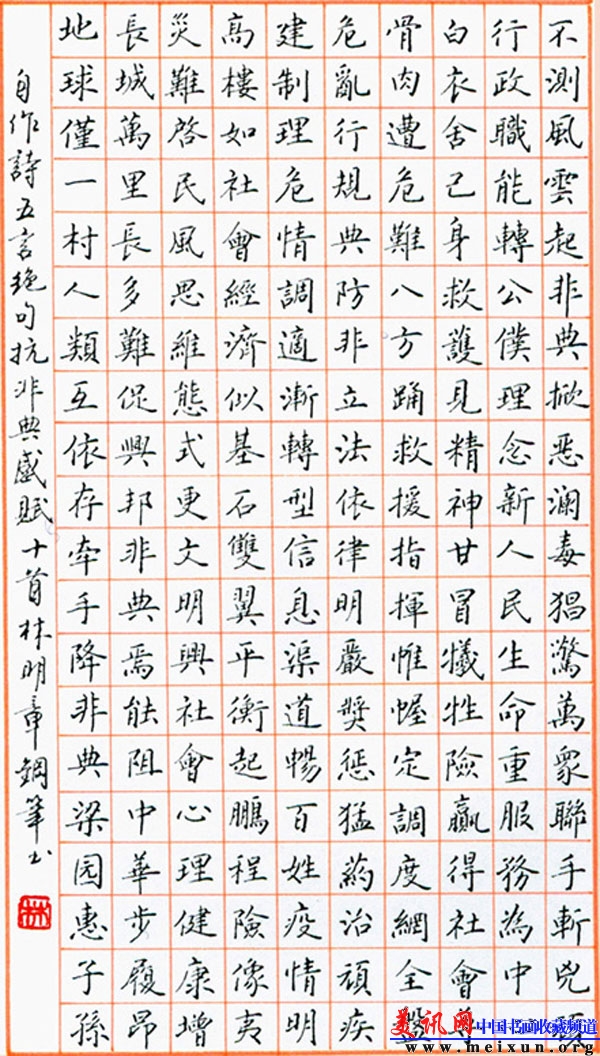 不測風雲起非典掀恶澜毒猖驚萬眾聯手斬兇頑
行政職能轉公僕理念新人民生命重服務為中
白衣舍己身救護見精神甘冒犧牲險贏得社會尊
骨肉遭危難八方踴救援指揮惟幄定調度網全
危亂行規典防非立法依律明嚴獎懲猛葯治頑疾
建制理危情調適漸轉型信息渠道暢百姓疫情明
高樓如社會經濟似基石雙翼平衡起鵬程險像夷
災難啓民風思維態式更文明興社會心理健康增
長城萬里長多難促興邦非典焉能阻中華步履昂
地球僅一村人類互依存牽手降非典梁园惠子孫
自作詩五言绝句抗非典感賦十首林明章鋼筆书
林
美讯网 中国书画收藏频道
www.meixun.org